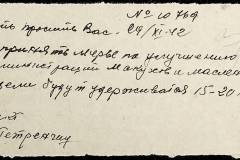 № 10769
ть просить Вас. 24/XI-42
принять меры по улучшению
министраций Макухов и маслен
дели будут удерживатся 15-20
Петренчиц